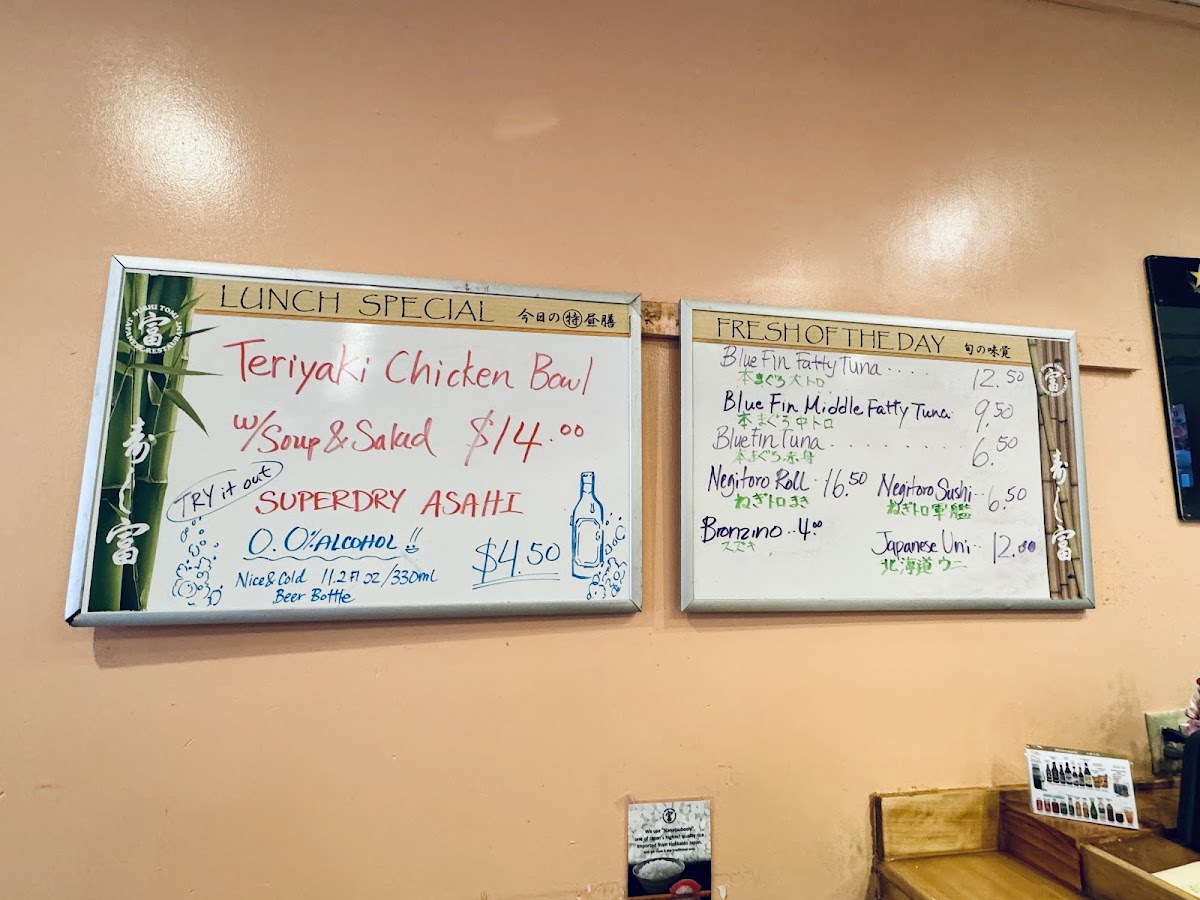 LUNCH SPECIAL 今日の特昼膳
SUSHI TOMI
JAPANESE RESTAURANT
富
寿し富
Teriyaki Chicken Bowl
w/Soup & Salad $14.00
TRY it out
SUPERDRY ASAHI
0.0% ALCOHOL !!
$4.50
Nice & Cold 11.2 Fl oz/330ml
Beer Bottle
FRESH OF THE DAY 旬の味覚
富
寿し富
Blue Fin Fatty Tuna .... 12.50
本まぐろ大トロ
Blue Fin Middle Fatty Tuna. 9.50
本まぐろ中トロ
Blue Fin Tuna ......... 6.50
本まぐろ赤身
Negitoro Roll. 16.50
ねぎトロまき
Negitoro Sushi.. 6.50
ねぎトロ軍艦
Bronzino..4.00
スズキ
Japanese Uni.. 12.00
北海道ウニ
富
We use "Nanatsuboshi",
one of Japan's highest quality rice
imported from Hokkaido Japan.